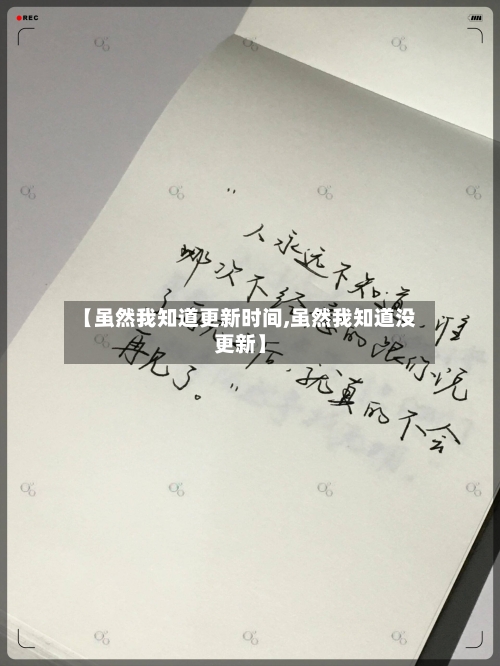 REC
“
人永远不知道，谁
哪次不经意的跟你说
【虽然我知道更新时间,虽然我知道没
更新】
后，就真的不会
再见了。”